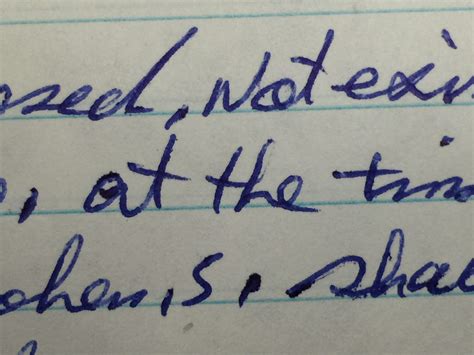 osed, Not exis
, at the tim
ohen, s, shal